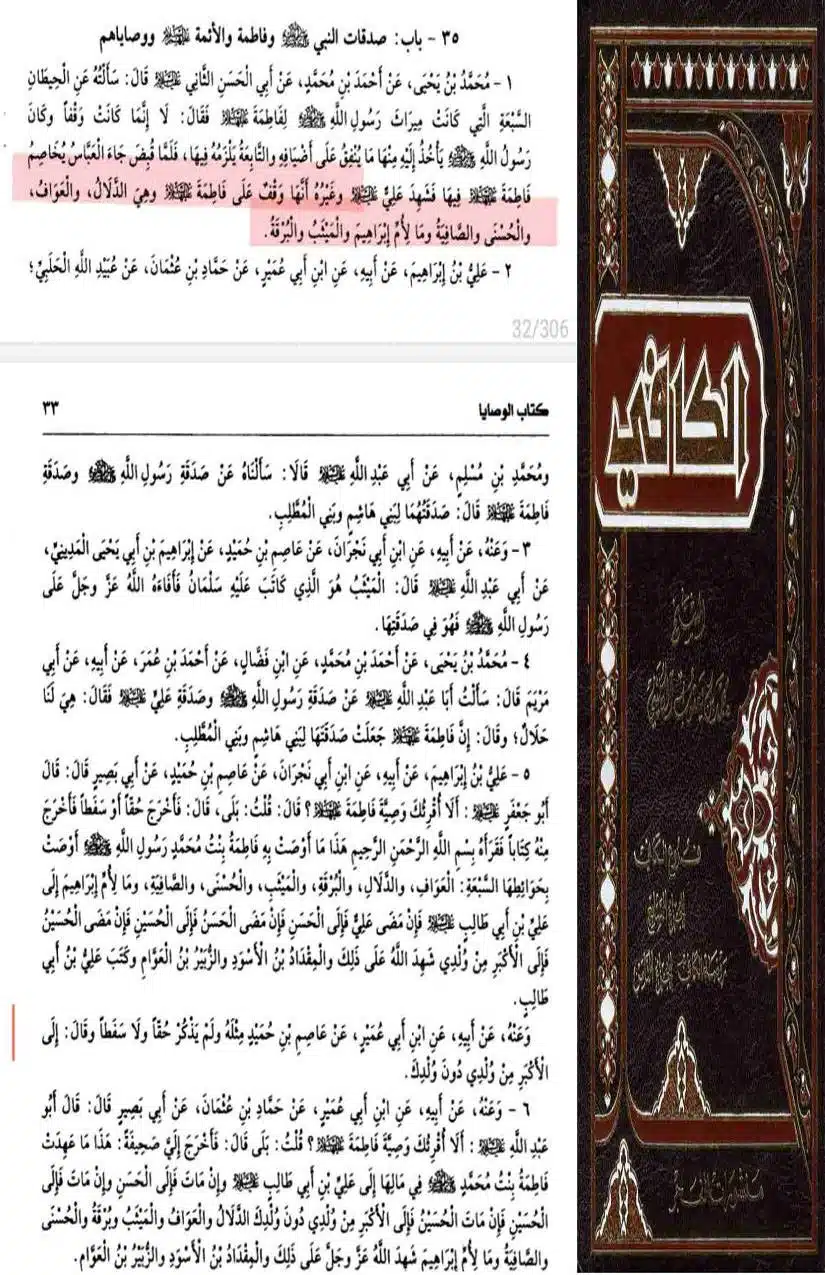 ٣٥ - باب: صدقات النبي ﷺ وفاطمة والأئمة ووصاياهم
١ - مُحَمَّدُ بْنُ يَحْيَى، عَنْ أَحْمَدَ بْنِ مُحَمَّدٍ، عَنْ أَبِي الْحَسَنِ الثَّانِي عَلَيْهِ السَّلَامُ قَالَ: سَأَلْتُهُ عَنِ الْحِيطَانِ
السَّبْعَةِ الَّتِي كَانَتْ مِيرَاثَ رَسُولِ اللَّهِ ﷺ لِفَاطِمَةَ فَقَالَ: لَا إِنَّمَا كَانَتْ وَقْفاً وكَانَ
رَسُولُ اللَّهِ ﷺ يَأْخُذُ إِلَيْهِ مِنْهَا مَا يُنْفِقُ عَلَى أَضْيَافِهِ والتَّابِعَةُ يَلْزَمُهُ فِيهَا، فَلَمَّا قُبِضَ جَاءَ الْعَبَّاسُ يُخَاصِمُ
فَاطِمَةَ فِيهَا فَشَهِدَ عَلِيٌّ وغَيْرُهُ أَنَّهَا وَقْفٌ عَلَى فَاطِمَةَ وهِيَ الدَّلَالُ، والْعَوَافُ،
والْحُسْنَى والصَّافِيَةُ ومَا لِأُمِّ إِبْرَاهِيمَ والْمَيْثَبُ والْبُرْقَةُ.
٢ - عَلِيُّ بْنُ إِبْرَاهِيمَ، عَنْ أَبِيهِ، عَنِ ابْنِ أَبِي عُمَيْرٍ، عَنْ حَمَّادِ بْنِ عُثْمَانَ، عَنْ عُبَيْدِ اللَّهِ الْحَلَبِيِّ؛
32/306
كتاب الوصايا ٣٣
ومُحَمَّدِ بْنِ مُسْلِمٍ، عَنْ أَبِي عَبْدِ اللَّهِ قَالَا: سَأَلْنَاهُ عَنْ صَدَقَةِ رَسُولِ اللَّهِ ﷺ وصَدَقَةِ
فَاطِمَةَ قَالَ: صَدَقَتُهُمَا لِبَنِي هَاشِمٍ وبَنِي الْمُطَّلِبِ.
٣ - وَعَنْهُ، عَنْ أَبِيهِ، عَنِ ابْنِ أَبِي نَجْرَانَ، عَنْ عَاصِمِ بْنِ حُمَيْدٍ، عَنْ إِبْرَاهِيمَ بْنِ أَبِي يَحْيَى الْمَدِينِيِّ،
عَنْ أَبِي عَبْدِ اللَّهِ قَالَ: الْمَيْثَبُ هُوَ الَّذِي كَاتَبَ عَلَيْهِ سَلْمَانُ فَأَفَاءَهُ اللَّهُ عَزَّ وجَلَّ عَلَى
رَسُولِ اللَّهِ ﷺ فَهُوَ فِي صَدَقَتِهَا.
٤ - مُحَمَّدُ بْنُ يَحْيَى، عَنْ أَحْمَدَ بْنِ مُحَمَّدٍ، عَنِ ابْنِ فَضَّالٍ، عَنْ أَحْمَدَ بْنِ عُمَرَ، عَنْ أَبِيهِ، عَنْ أَبِي
مَرْيَمَ قَالَ: سَأَلْتُ أَبَا عَبْدِ اللَّهِ عَنْ صَدَقَةِ رَسُولِ اللَّهِ ﷺ وصَدَقَةِ عَلِيٍّ فَقَالَ: هِيَ لَنَا
حَلَالٌ؛ وقَالَ: إِنَّ فَاطِمَةَ جَعَلَتْ صَدَقَتَهَا لِبَنِي هَاشِمٍ وبَنِي الْمُطَّلِبِ.
٥ - عَلِيُّ بْنُ إِبْرَاهِيمَ، عَنْ أَبِيهِ، عَنِ ابْنِ أَبِي نَجْرَانَ، عَنْ عَاصِمِ بْنِ حُمَيْدٍ، عَنْ أَبِي بَصِيرٍ قَالَ: قَالَ
أَبُو جَعْفَرٍ: أَلَا أُقْرِئُكَ وَصِيَّةَ فَاطِمَةَ؟ قَالَ: قُلْتُ: بَلَى، قَالَ: فَأَخْرَجَ حُقّاً أَوْ سَفَطاً فَأَخْرَجَ
مِنْهُ كِتَاباً فَقَرَأَهُ بِسْمِ اللَّهِ الرَّحْمَنِ الرَّحِيمِ هَذَا مَا أَوْصَتْ بِهِ فَاطِمَةُ بِنْتُ مُحَمَّدٍ رَسُولِ اللَّهِ ﷺ أَوْصَتْ
بِحَوَائِطِهَا السَّبْعَةِ: الْعَوَافِ، والدَّلَالِ، والْبُرْقَةِ، والْمَيْثَبِ، والْحُسْنَى، والصَّافِيَةِ، ومَا لِأُمِّ إِبْرَاهِيمَ إِلَى
عَلِيِّ بْنِ أَبِي طَالِبٍ فَإِنْ مَضَى عَلِيٌّ فَإِلَى الْحَسَنِ فَإِنْ مَضَى الْحَسَنُ فَإِلَى الْحُسَيْنِ فَإِنْ مَضَى الْحُسَيْنُ
فَإِلَى الْأَكْبَرِ مِنْ وُلْدِي شَهِدَ اللَّهُ عَلَى ذَلِكَ والْمِقْدَادُ بْنُ الْأَسْوَدِ والزُّبَيْرُ بْنُ الْعَوَّامِ وكَتَبَ عَلِيُّ بْنُ أَبِي
طَالِبٍ.
وَعَنْهُ، عَنْ أَبِيهِ، عَنِ ابْنِ أَبِي عُمَيْرٍ، عَنْ عَاصِمِ بْنِ حُمَيْدٍ مِثْلَهُ ولَمْ يَذْكُرْ حُقّاً ولَا سَفَطاً وقَالَ: إِلَى
الْأَكْبَرِ مِنْ وُلْدِي دُونَ وُلْدِكَ.
٦ - وَعَنْهُ، عَنْ أَبِيهِ، عَنِ ابْنِ أَبِي عُمَيْرٍ، عَنْ حَمَّادِ بْنِ عُثْمَانَ، عَنْ أَبِي بَصِيرٍ قَالَ: قَالَ أَبُو
عَبْدِ اللَّهِ: أَلَا أُقْرِئُكَ وَصِيَّةَ فَاطِمَةَ؟ قُلْتُ: بَلَى قَالَ: فَأَخْرَجَ إِلَيَّ صَحِيفَةً: هَذَا مَا عَهِدَتْ
فَاطِمَةُ بِنْتُ مُحَمَّدٍ ﷺ فِي مَالِهَا إِلَى عَلِيِّ بْنِ أَبِي طَالِبٍ وإِنْ مَاتَ فَإِلَى الْحَسَنِ وإِنْ مَاتَ فَإِلَى
الْحُسَيْنِ فَإِنْ مَاتَ الْحُسَيْنُ فَإِلَى الْأَكْبَرِ مِنْ وُلْدِي دُونَ وُلْدِكَ الدَّلَالُ والْعَوَافُ والْمَيْثَبُ وبُرْقَةُ والْحُسْنَى
والصَّافِيَةُ ومَا لِأُمِّ إِبْرَاهِيمَ شَهِدَ اللَّهُ عَزَّ وجَلَّ عَلَى ذَلِكَ والْمِقْدَادُ بْنُ الْأَسْوَدِ والزُّبَيْرُ بْنُ الْعَوَّامِ.
الكافي
فروع الكافي